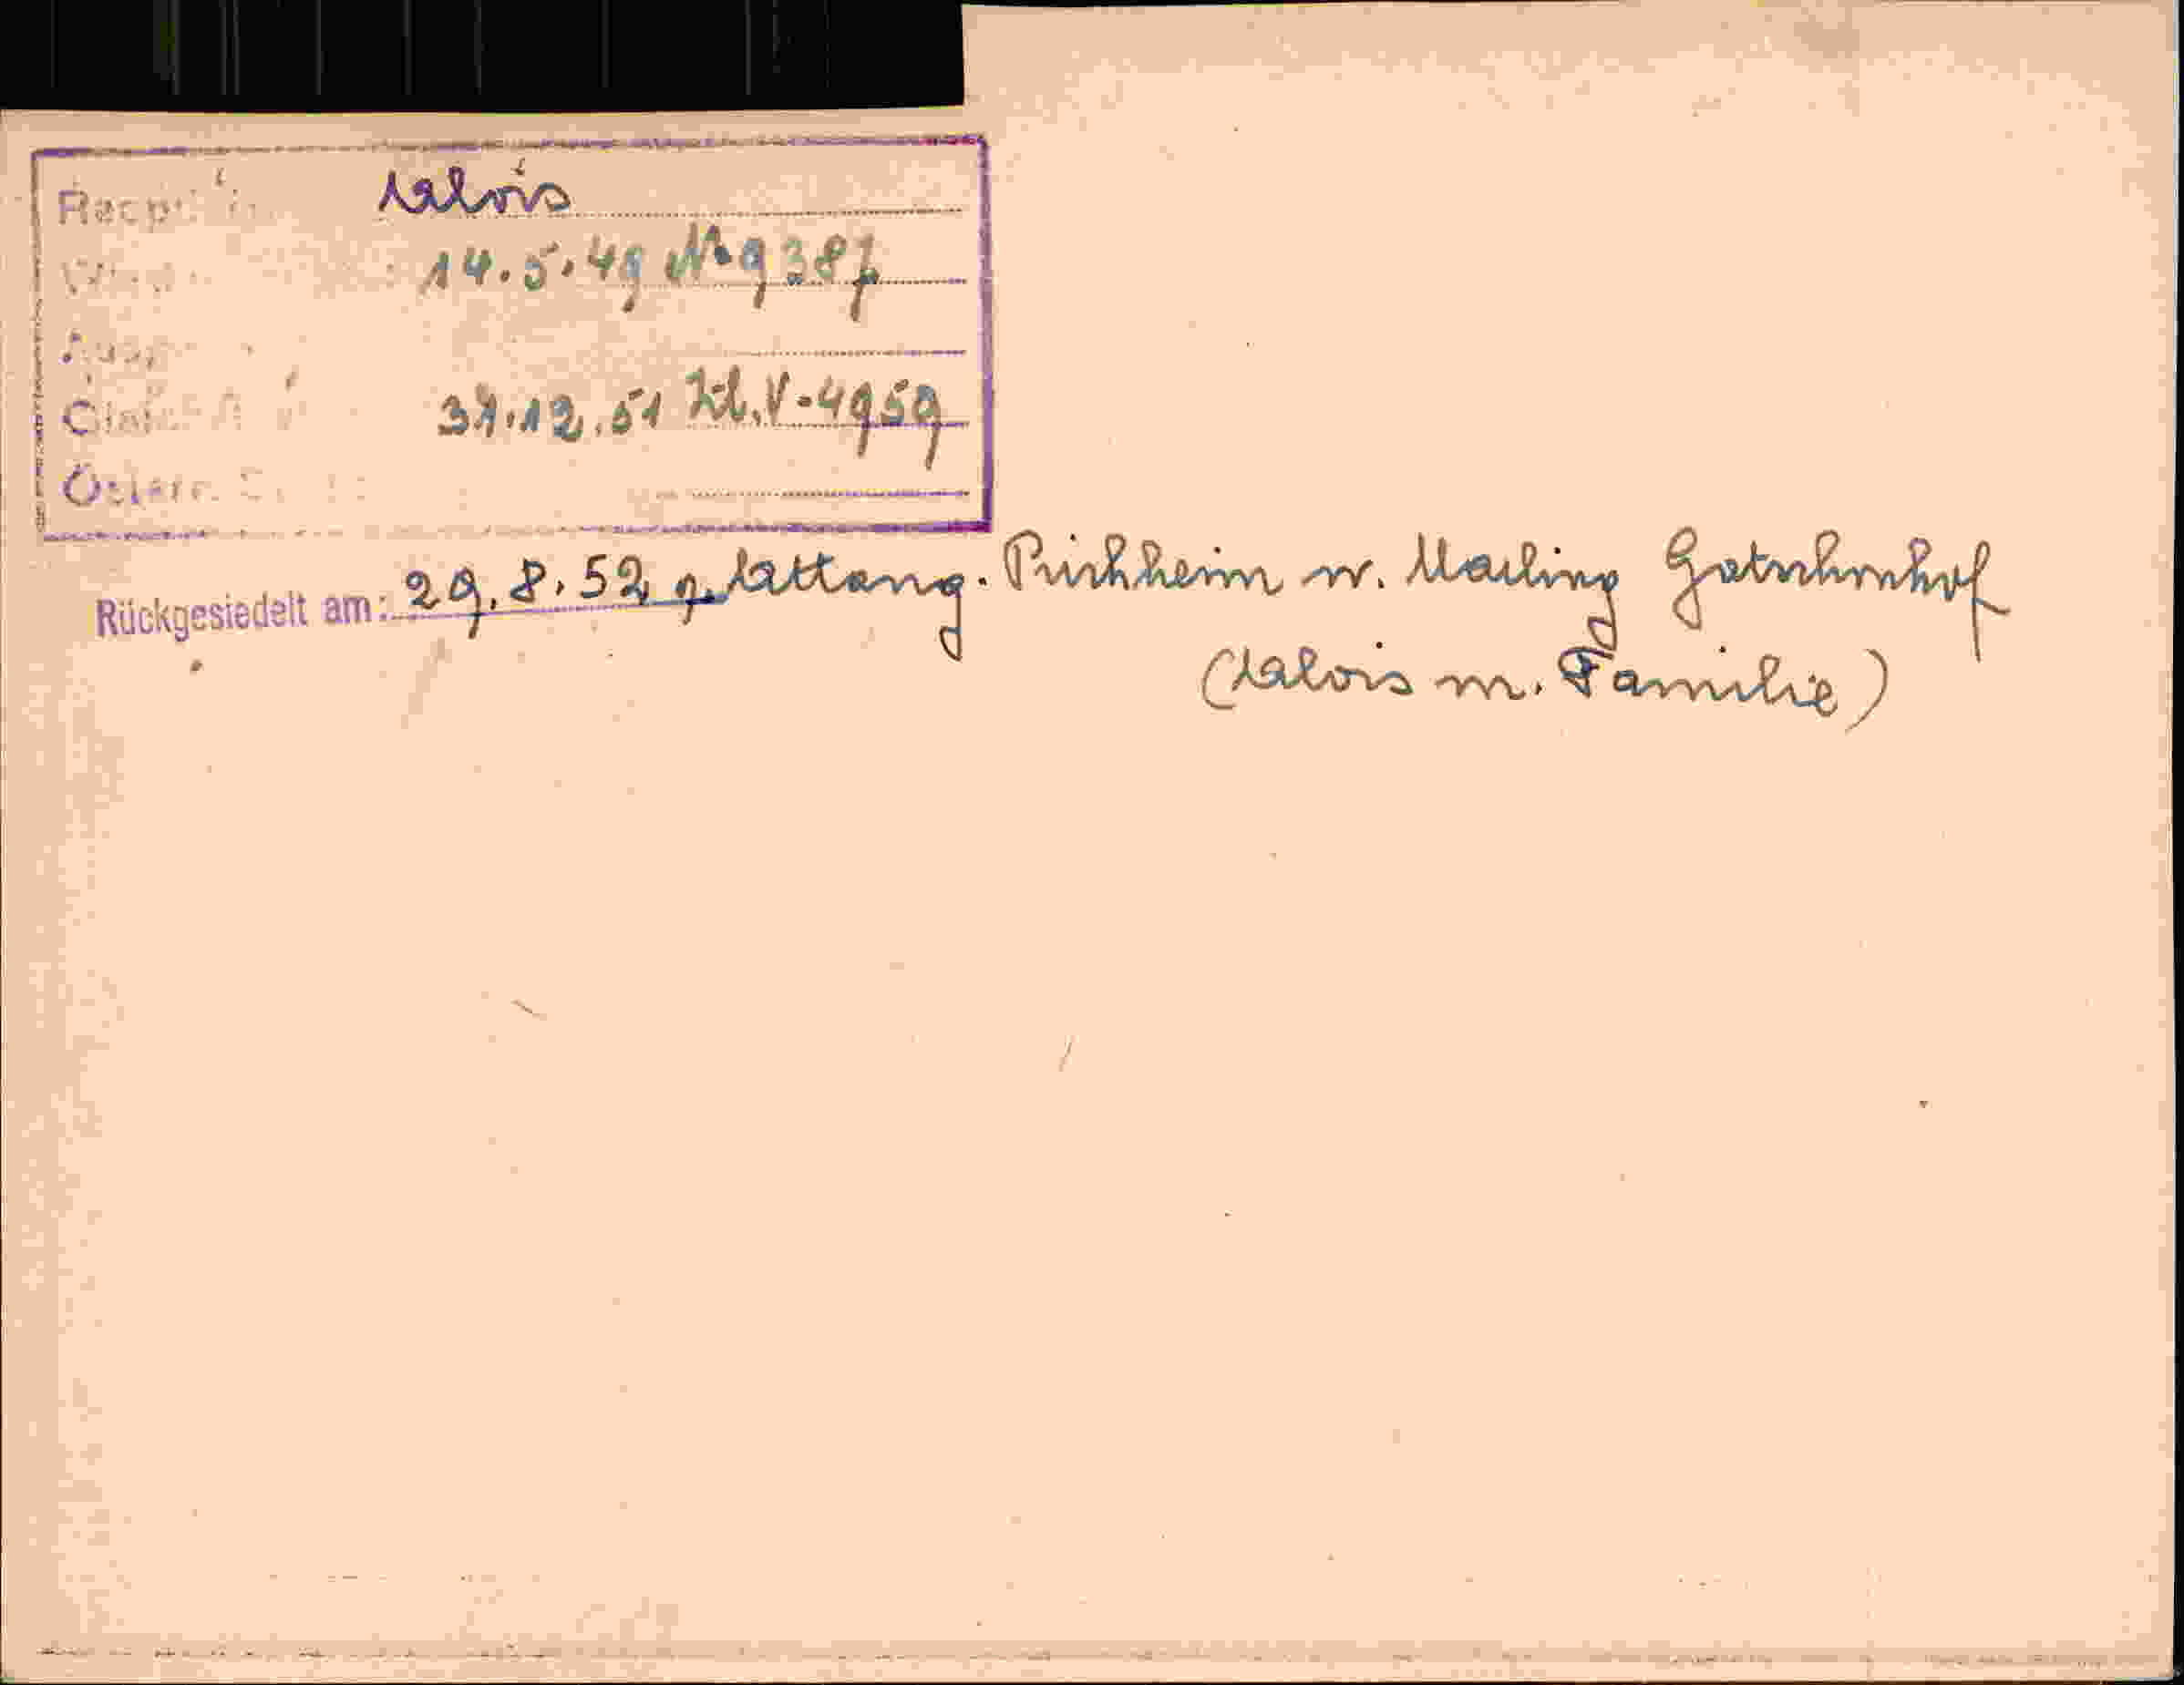 Alois
14.5.49 N. 9387
31.12.51 Zl. V-4959
Österr.
Rückgesiedelt am: 29.8.52 n. Attang. Puchheim w. Mailing Gatschenhof
(Alois m. Familie)